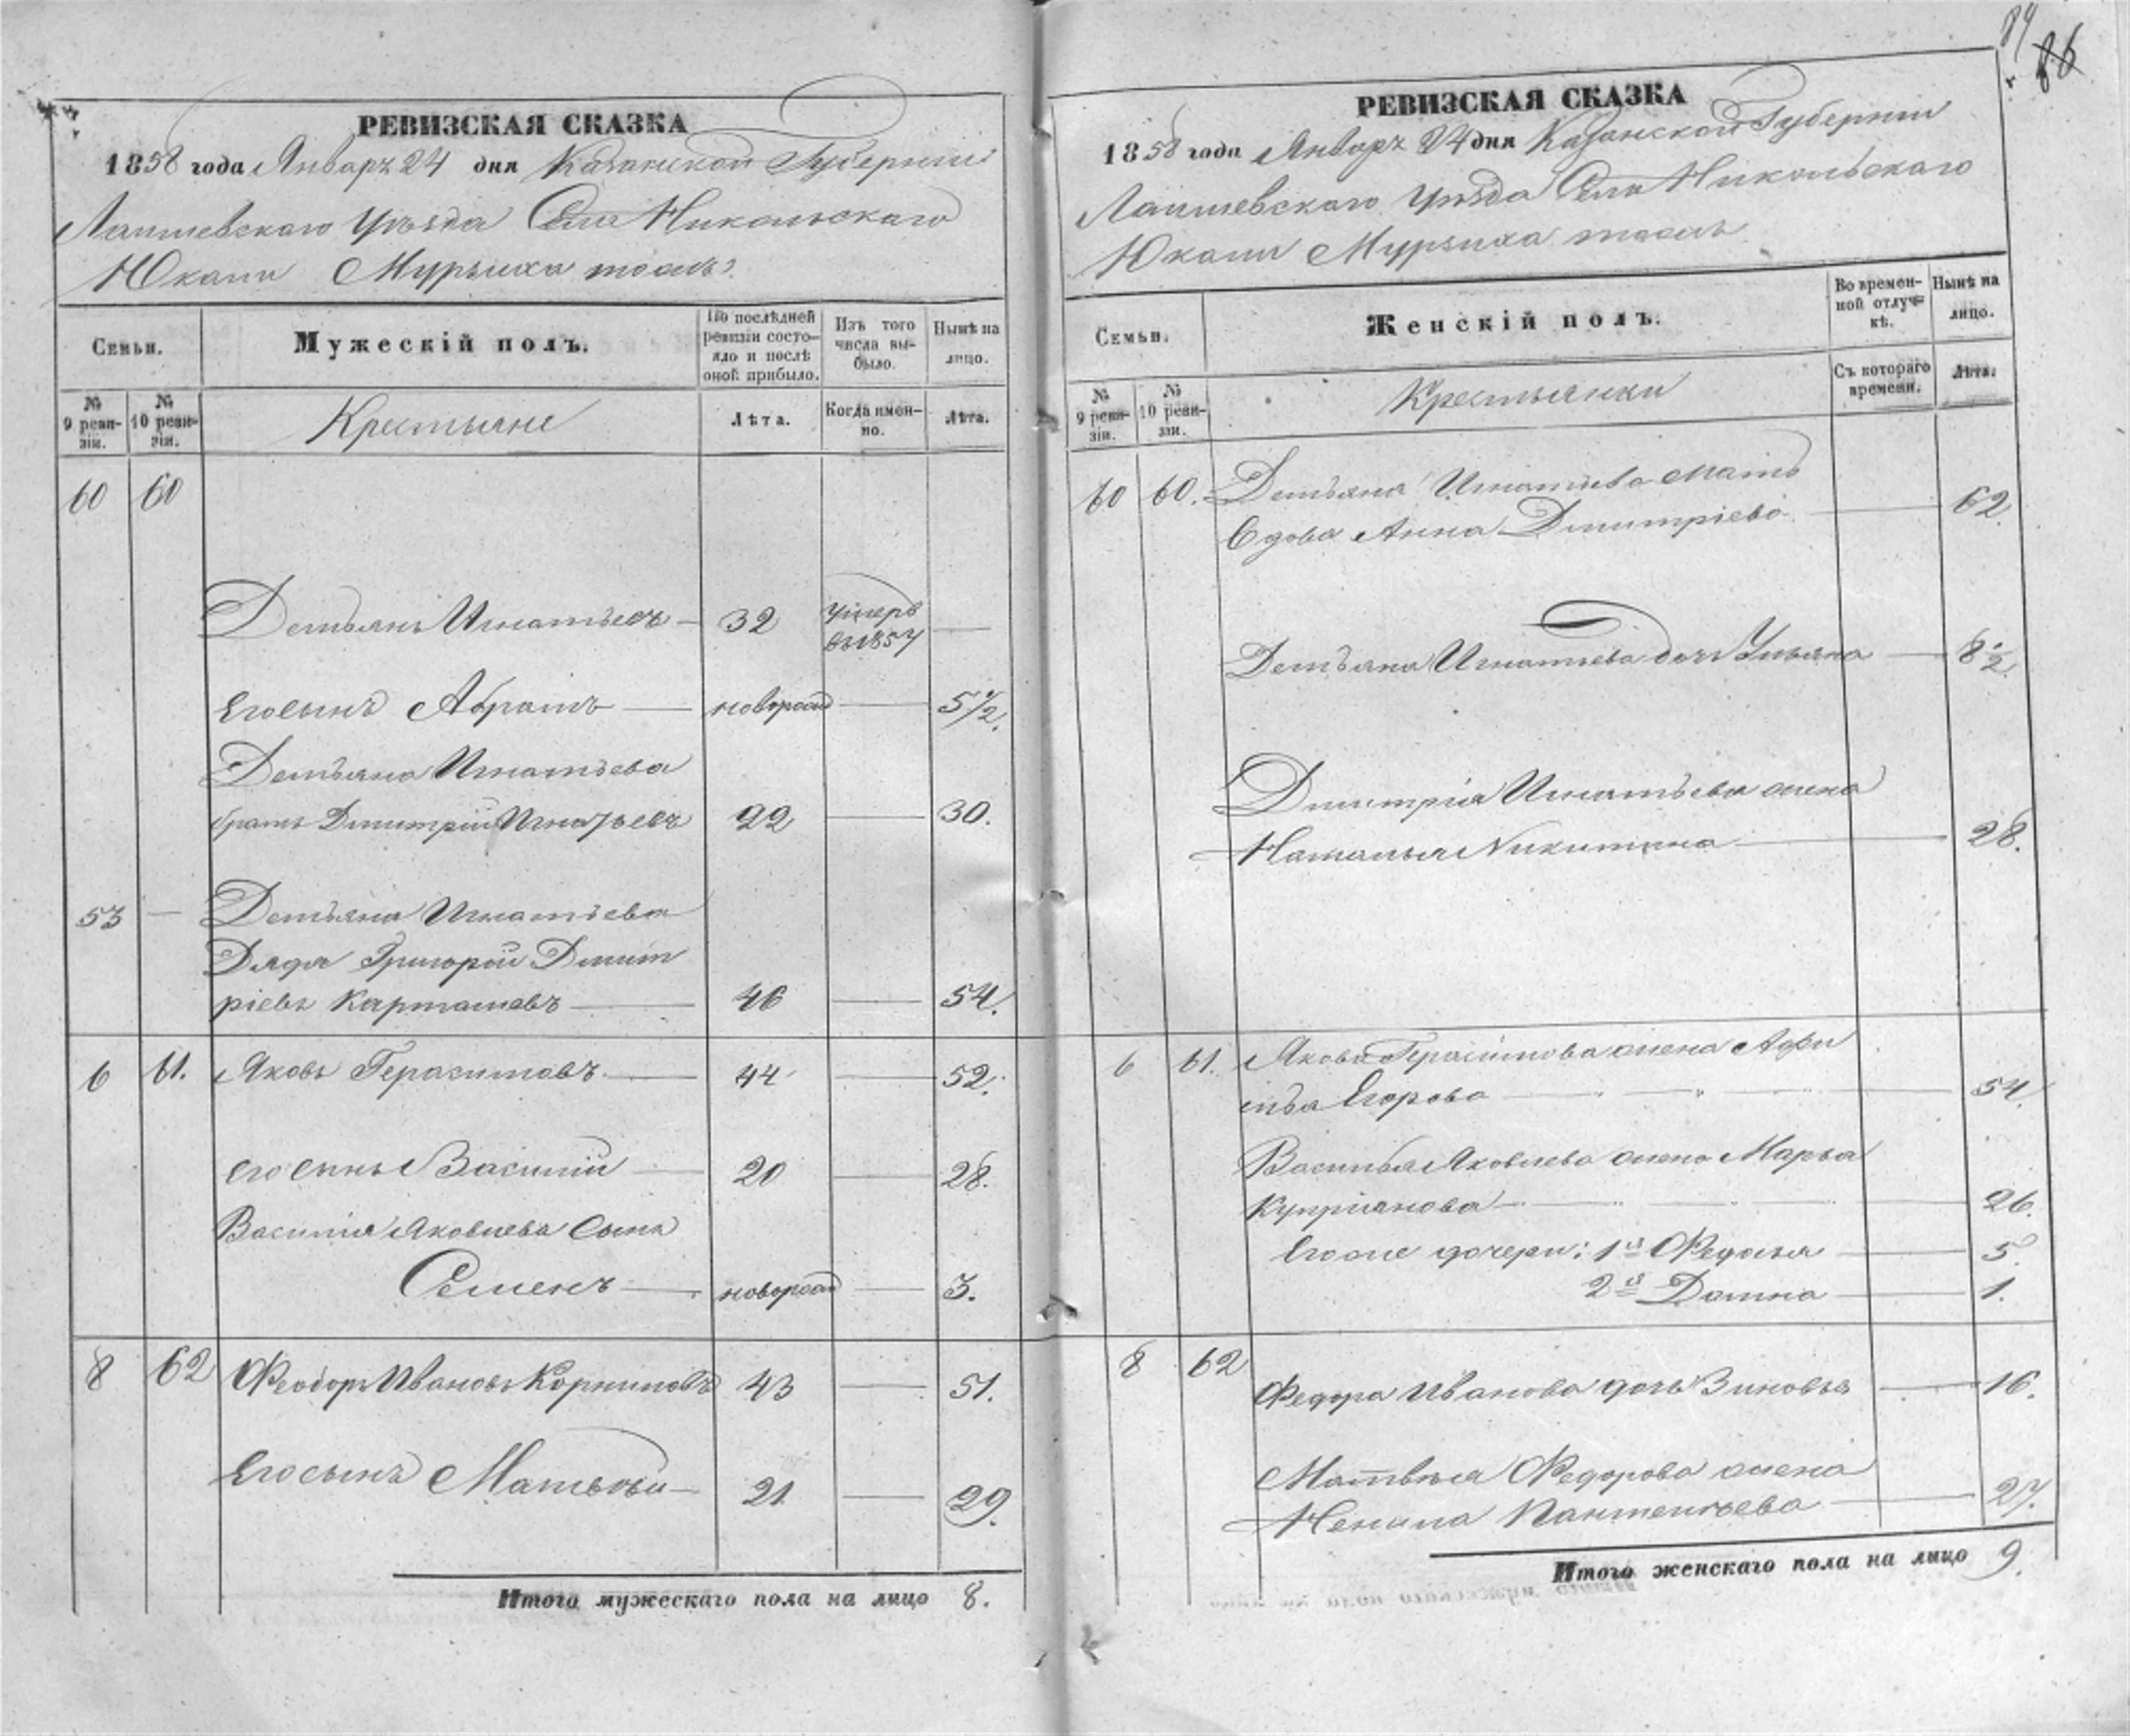 РЕВИЗСКАЯ СКАЗКА
1858 года Январъ 24 дня Казанской Губерніи
Лаишевскаго Уѣзда Села Никольскаго
Юкачи Мурзиха тожъ
Семьи.
Мужескій полъ.
По послѣдней ревизіи состояло и послѣ оной прибыло.
Изъ того числа выбыло.
Нынѣ на лицо.
№ 9 ревизіи.
№ 10 ревизіи.
Крестьяне
Лѣта.
Когда именно.
Лѣта.
60 60
Демьянъ Игнатьевъ 32 умеръ въ 1857
Его сынъ новорожд 5 1/2.
Демьяна Игнатьева
братъ Дмитрій Игнатьевъ 22 30.
53 Демьяна Игнатьева
Дядя Григорій Дмит
ріевъ Карташевъ 46 54.
6 61. Яковъ Герасимовъ 44 52.
Его сынъ Василій 20 28.
Василія Яковлева сынъ
Семенъ новорожд 3.
8 62 Феодоръ Ивановъ 43 51.
Его сынъ Матвѣй 21 29.
Итого мужескаго пола на лицо 8.
84
86
РЕВИЗСКАЯ СКАЗКА
1858 года Январъ 24 дня Казанской Губерніи
Лаишевскаго Уѣзда Села Никольскаго
Юкачи Мурзиха тожъ
Семьи.
Женскій полъ.
Во временной отлучкѣ.
Нынѣ на лицо.
№ 9 ревизіи.
№ 10 ревизіи.
Крестьянки
Съ котораго времени.
Лѣта.
60 60. Демьяна Игнатьева мать
вдова Анна Дмитріева 62.
Демьяна Игнатьева дочь Ульяна 8 1/2
Дмитрія Игнатьева жена
Наталья Никитина 28.
6 61. Якова Герасимова жена Афи
мья Егорова 54.
Василья Яковлева жена Марья
Купріянова 26.
Его же дочери: 1я Федосья 5
2я Домна 1.
8 62 Федора Иванова дочь Зиновья 16.
Матвѣя Федорова жена
Ненила Пантелѣева 27.
Итого женскаго пола на лицо 9.